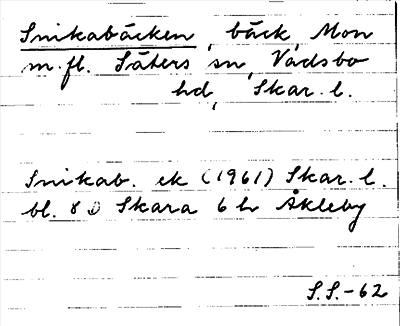 Snikabäcken, bäck, Mon
m.fl. Säters sn, Vadsbo
hd, Skar. l.
Snikab. ek (1961) Skar. l.
bl. 8 D Skara 6 h Åkleby
S.S.-62